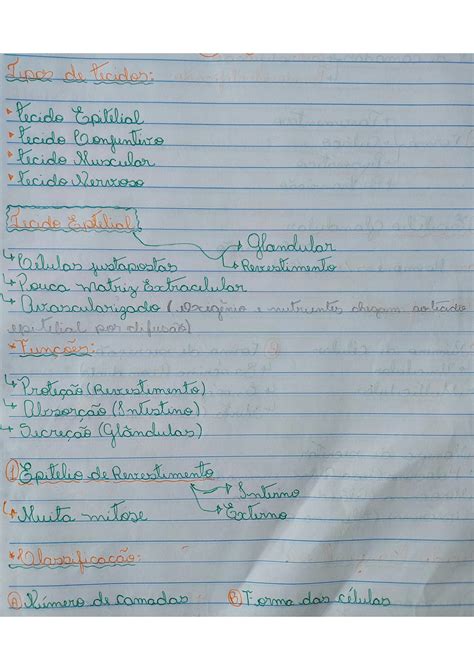 Tipos de tecidos:
▸ tecido Epitelial
▸ tecido Conjuntivo
▸ tecido Muscular
▸ tecido Nervoso
Tecido Epitelial
→ Glandular
→ Revestimento
↳ Células justapostas
↳ Pouca matriz Extracelular
↳ Avascularizado (oxigênio e nutrientes chegam ao tecido
epitelial por difusão)
* Funções:
↳ Proteção (Revestimento)
↳ Absorção (Intestino)
↳ Secreção (Glândulas)
① Epitélio de Revestimento
→ Interno
→ Externo
↳ Muita mitose
* Classificação:
Ⓐ Número de camadas Ⓑ Forma das células